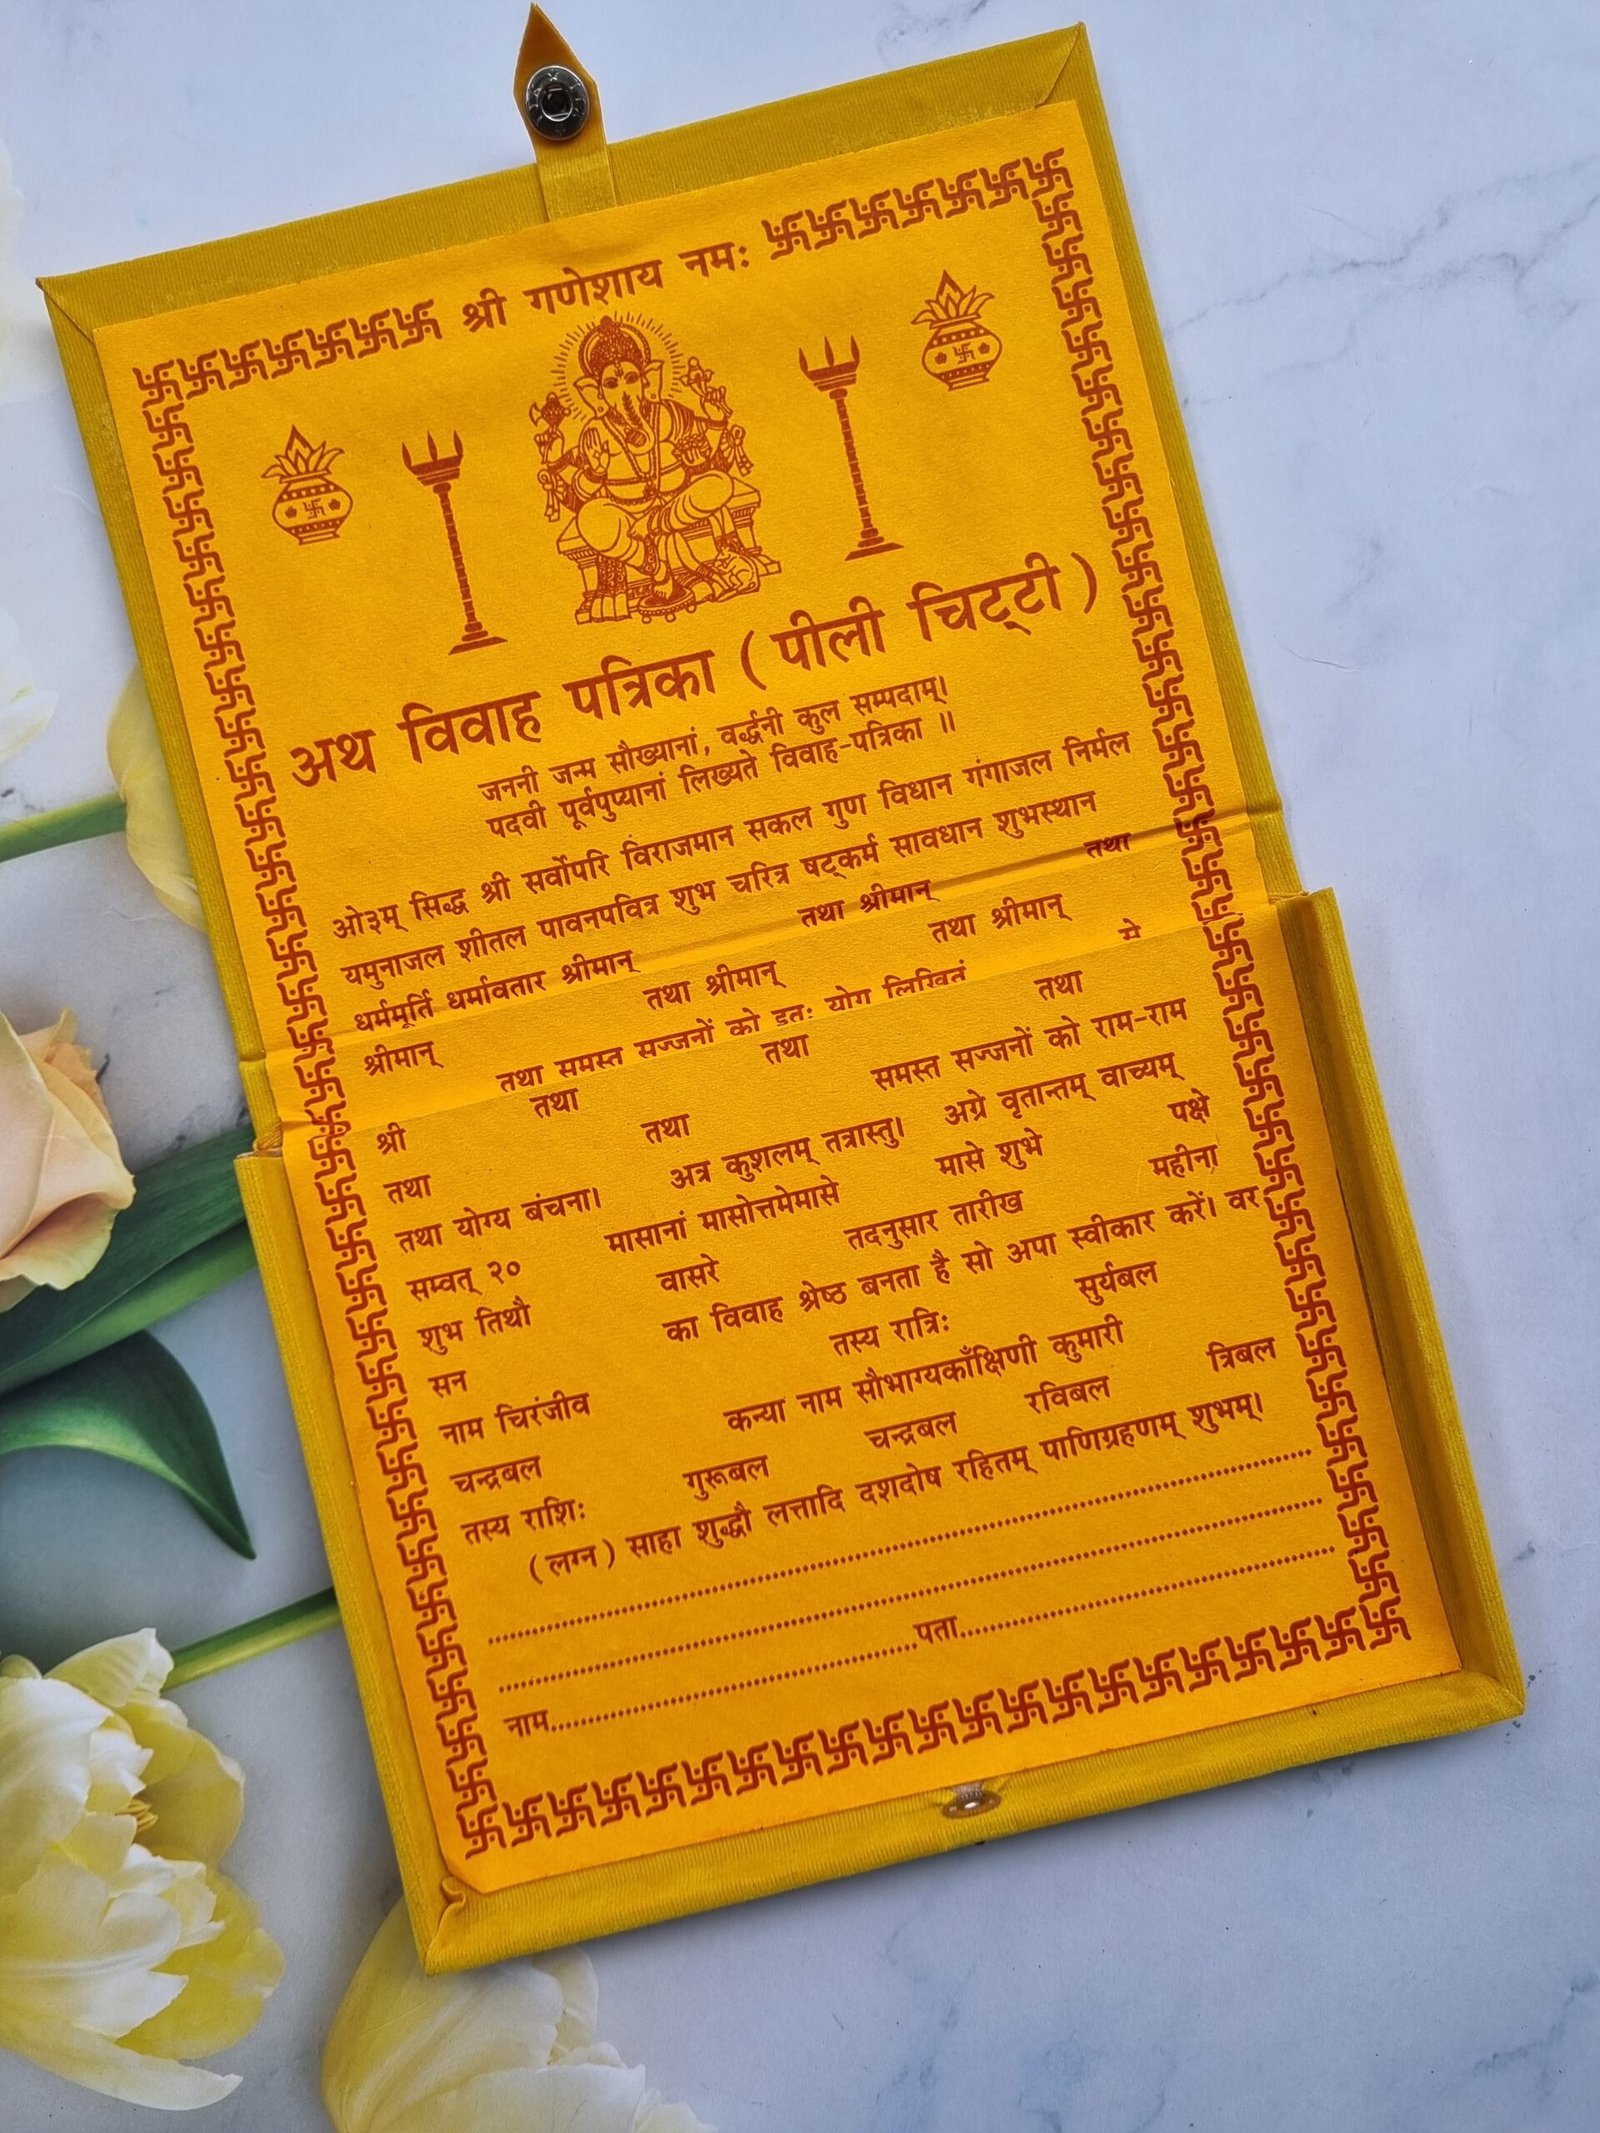 श्री गणेशाय नमः
अथ विवाह पत्रिका ( पीली चिट्टी )
जननी जन्म सौख्यानां, वर्द्धनी कुल सम्पदाम्।
पदवी पूर्वपुण्यानां लिख्यते विवाह-पत्रिका ॥
ओ३म् सिद्ध श्री सर्वोपरि विराजमान सकल गुण विधान गंगाजल निर्मल
यमुनाजल शीतल पावनपवित्र शुभ चरित्र षट्कर्म सावधान शुभस्थान
धर्ममूर्ति धर्मावतार श्रीमान् तथा श्रीमान् तथा
श्रीमान् तथा श्रीमान् तथा श्रीमान्
तथा समस्त सज्जनों को इतः योग लिखितं मे
श्री तथा तथा तथा
तथा तथा समस्त सज्जनों को राम-राम
तथा योग्य बंचना। अत्र कुशलम् तत्रास्तु। अग्रे वृतान्तम् वाच्यम्
सम्वत् २० मासानां मासोत्तमेमासे मासे शुभे पक्षे
शुभ तिथौ वासरे तदनुसार तारीख महीना
सन का विवाह श्रेष्ठ बनता है सो अपा स्वीकार करें। वर
नाम चिरंजीव तस्य रात्रिः सुर्यबल
चन्द्रबल कन्या नाम सौभाग्यकाँक्षिणी कुमारी
तस्य राशिः गुरूबल चन्द्रबल रविबल त्रिबल
( लग्न ) साहा शुद्धौ लत्तादि दशदोष रहितम् पाणिग्रहणम् शुभम्।
नाम पता